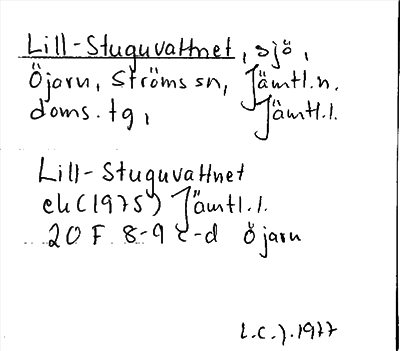 Lill-Stuguvattnet, sjö,
Öjarn, Ströms sn, Jämtl.n.
doms.tg, Jämtl.l.
Lill-Stuguvattnet
ek (1975) Jämtl.l.
20 F 8-9 c-d Öjarn
L.C.J. 1977